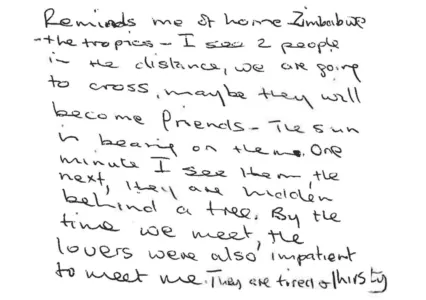 Reminds me of home Zimbabwe
- the tropics - I see 2 people
in the distance, we are going
to cross, maybe they will
become friends - The sun
is bearing on them. One
minute I see them, the
next, they are hidden
behind a tree. By the
time we meet, the
lovers were also impatient
to meet me. They are tired & thirsty